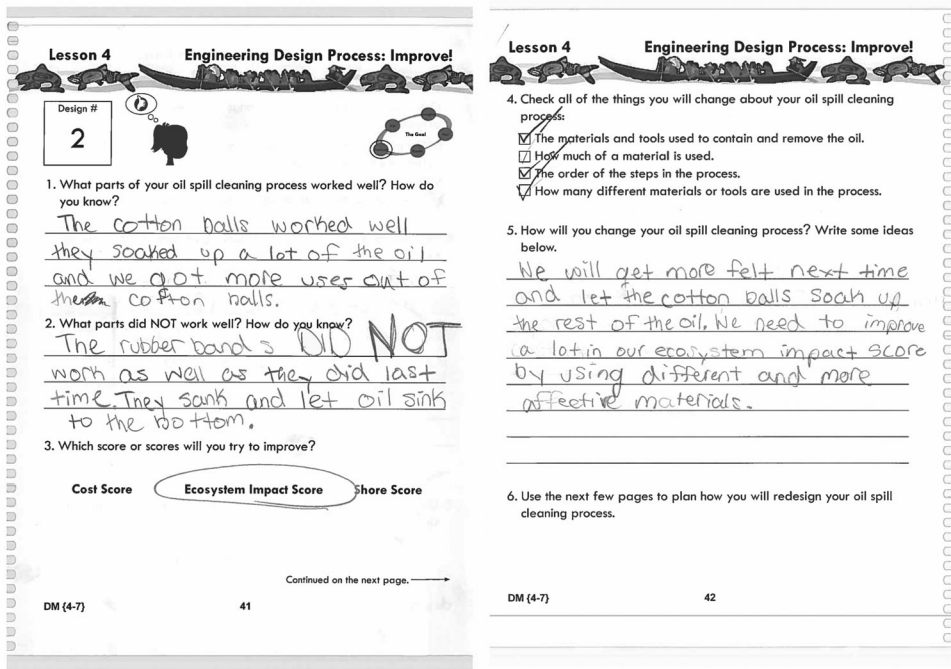 Lesson 4
Engineering Design Process: Improve!
Design #
2
The Goal
1. What parts of your oil spill cleaning process worked well? How do
you know?
The cotton balls worked well
they soaked up a lot of the oil
and we got more uses out of
the cotton balls.
2. What parts did NOT work well? How do you know?
The rubber bands DID NOT
work as well as they did last
time. They sank and let oil sink
to the bottom.
3. Which score or scores will you try to improve?
Cost Score
Ecosystem Impact Score
Shore Score
Continued on the next page.
DM {4-7}
41
Lesson 4
Engineering Design Process: Improve!
4. Check all of the things you will change about your oil spill cleaning
process:
The materials and tools used to contain and remove the oil.
How much of a material is used.
The order of the steps in the process.
How many different materials or tools are used in the process.
5. How will you change your oil spill cleaning process? Write some ideas
below.
We will get more felt next time
and let the cotton balls soak up
the rest of the oil. We need to improve
a lot in our ecosystem impact score
by using different and more
affective materials.
6. Use the next few pages to plan how you will redesign your oil spill
cleaning process.
DM {4-7}
42